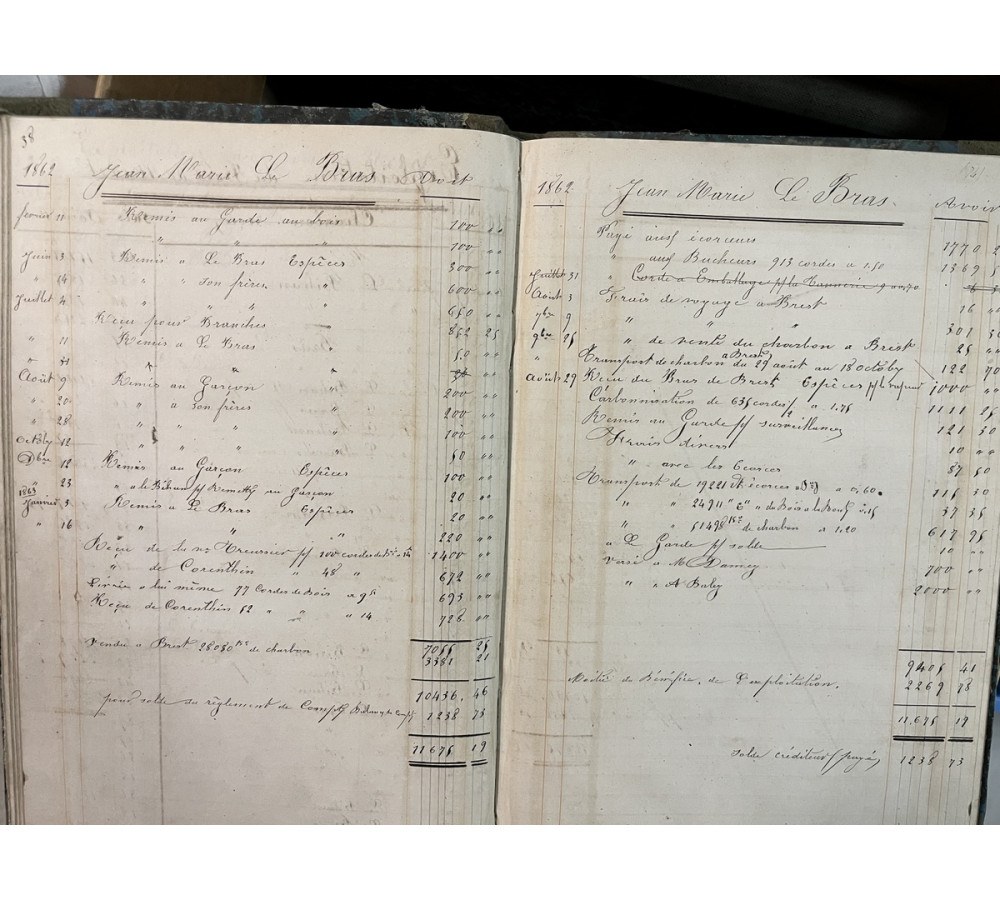 38
1862 Jean Marie Le Bras Doit
février 11 Remis au Garde au bois 100 "
" " " 100 "
Juin 3 Remis a Le Bras Espèces 300 "
" 14 " " son frères " 600 "
Juillet 4 " " " 650 "
Reçu pour Branches 862 25
" 11 Remis a Le Bras " 50 "
" "
Août 9 Remis au Garçon " 200 "
" 20 " a son frères " 200 "
" 28 " " " " 100 "
Octobʳ 12 " " " 50 "
Dbre 12 Remis au Garçon Espèces 100 "
" 23 " a le pʳ au Garçon 20 "
1863
Janvier 3 Remis a Le Bras Espèces 20 "
" 16 " " " 220 "
Reçu de la pʳ 100 cordes de 1400 "
" de Corenthin " 48 " 672 "
Livrée a lui même 77 Cordes de Bois a 9 693 "
Reçu de Corenthin 52 " " " 14 728 "
7055 25
Vendu a Brest 28050 de charbon 3381 21
10436. 46
pour solde du règlement de 1238 73
11675 19
1862 Jean Marie Le Bras. Avoir
Payé aux écorceurs 1770
" aux Bucheurs 913 cordes a 1.50 1369 5
Juillet 31 " Corde a Emballage pʳ la Tannerie
Août 3 Frais de voyage a Brest 16 "
7bre 9 " " " 301
9bre 25 " de vente du charbon a Brest 25 "
" Transport de charbon a Brest du 29 août au 18 octobʳ 122 70
Août 29 Reçu du Bras de Brest Espèces 1000 "
Carbonnisation de 635 cordes ½ a 1.75 1111 25
Remis au Garde pʳ surveillance 121 50
Frais divers 10 "
" avec les Ecorces 87 50
Transport de 19221 écorces a 0,60 115 30
" " 24911 " " de Bois a le Bouf 37 35
" " 51498 de charbon a 1.20 617 95
" Le Garde pʳ solde 10 "
Versé a Mʳ Damey 700 "
" " A Baley 2000 "
9405 41
Moitié de Bénéfice de l'exploitation. 2269 78
11.675 19
solde créditeur (payé) 1238 73